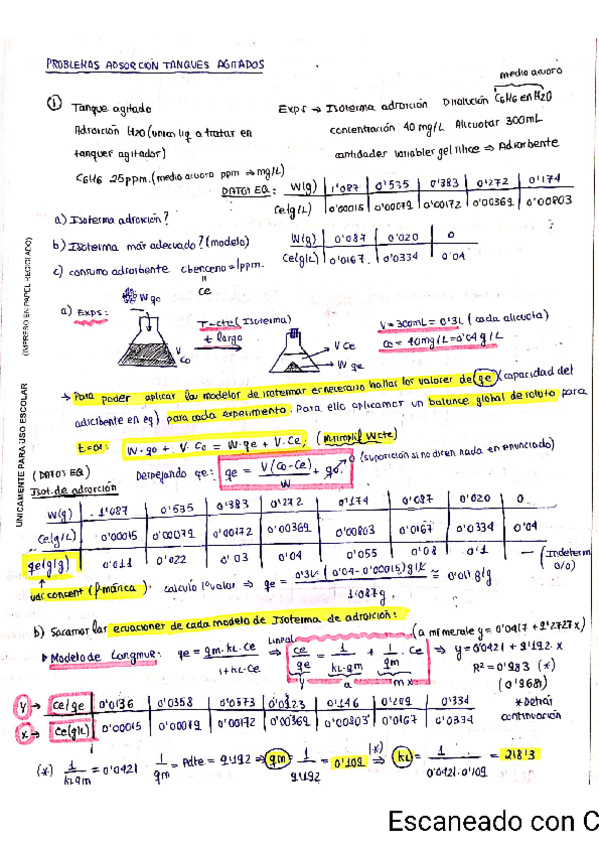 PROBLEMAS ADSORCIÓN TANQUES AGITADOS
medio acuoso
① Tanque agitado
Exps → Isoterma adsorción Disolución C6H6 en H2O
Adsorción H2O (unico liq a tratar en
concentración 40 mg/L Alicuotas 300mL
tanques agitador)
cantidades variables gel sílice ⇒ Adsorbente
C6H6 25ppm. (medio acuoso ppm ⇒ mg/L)
DATOS EQ: W(g) 1'087 0'535 0'383 0'272 0'174
Ce(g/L) 0'00015 0'00079 0'00172 0'00369 0'00803
a) Isoterma adsorción?
b) Isoterma más adecuado? (modelo)
W(g) 0'087 0'020 0
Ce(g/L) 0'0167 0'0334 0'04
c) consumo adsorbente Cbenceno = 1ppm.
Ce
(IMPRESO EN PAPEL RECICLADO)
UNICAMENTE PARA USO ESCOLAR
a) EXPS:
W qo
V
Co
T=cte (Isoterma)
t largo
V Ce
W qe
V=300mL = 0'3L (cada alicuota)
Co = 40mg/L = 0'04 g/L
→ Para poder aplicar los modelos de isotermas es necesario hallar los valores de qe (capacidad del
adsorbente en eq) para cada experimento. Para ello aplicamos un balance global de soluto para
W·qo + V·Co = W·qe + V·Ce;
(DATOS EQ)
Isot. de adsorción
Despejando qe: qe = V(Co-Ce)/W + qo
(suposición si no dicen nada en enunciado)
W(g) 1'087 0'535 0'383 0'272 0'174 0'087 0'020 0
Ce(g/L) 0'00015 0'00079 0'00172 0'00369 0'00803 0'0167 0'0334 0'04
qe(g/g) 0'011 0'022 0'03 0'04 0'055 0'08 0'1 — (Indeterm 0/0)
calculo 1º valor ⇒ qe = 0'3L (0'04-0'00015)g/L / 1'087g = 0'011 g/g
b) Sacamos las ecuaciones de cada modelo de Isoterma de adsorción:
(a mi me sale y=0'0417+9'2727x)
▶ Modelo de Langmuir: qe = qm·kL·Ce / 1+kL·Ce ⇒ Lineal Ce/qe = 1/kL·qm + 1/qm · Ce ⇒ y=0'0421+9'192·x
y a m x
R²=0'983 (*)
(0'9681)
y → Ce/qe 0'0136 0'0358 0'0573 0'0923 0'146 0'209 0'334
x → Ce(g/L) 0'00015 0'00079 0'00172 0'00369 0'00803 0'0167 0'0334
*Detrás
continuación
(*) 1/kLqm = 0'0421 1/qm = Pdte = 9'192 ⇒ qm = 1/9'192 = 0'109 ⇒ (*) kL = 1/0'0421·0'109 = 218'3
Escaneado con C